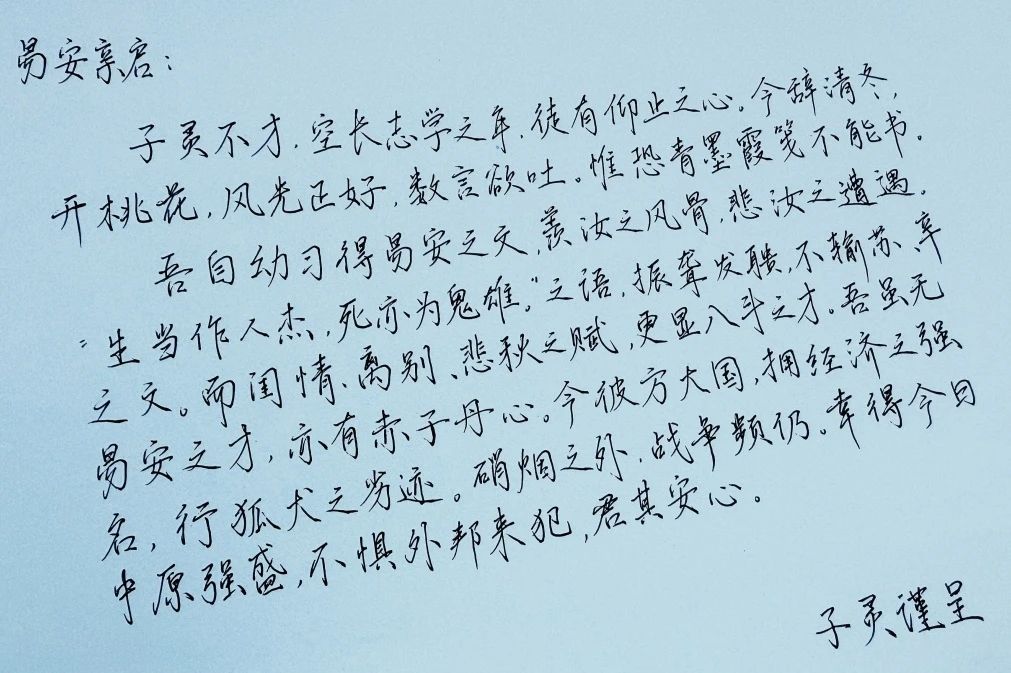 易安亲启：
子灵不才，空长志学之年，徒有仰止之心。今辞清冬，
开桃花，风光正好，数言欲吐。惟恐青墨霞笺不能书。
吾自幼习得易安之文，羡汝之风骨，悲汝之遭遇。
“生当作人杰，死亦为鬼雄。”之语，振聋发聩，不输苏、辛
之文。而闺情、离别、悲秋之赋，更显八斗之才。吾虽无
易安之才，亦有赤子丹心。今彼方大国，拥经济之强
名，行狐犬之劣迹。硝烟之外，战争频仍。幸得今日
中原强盛，不惧外邦来犯，君其安心。
子灵谨呈